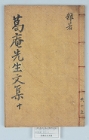 雜著
葛庵先生文集 十